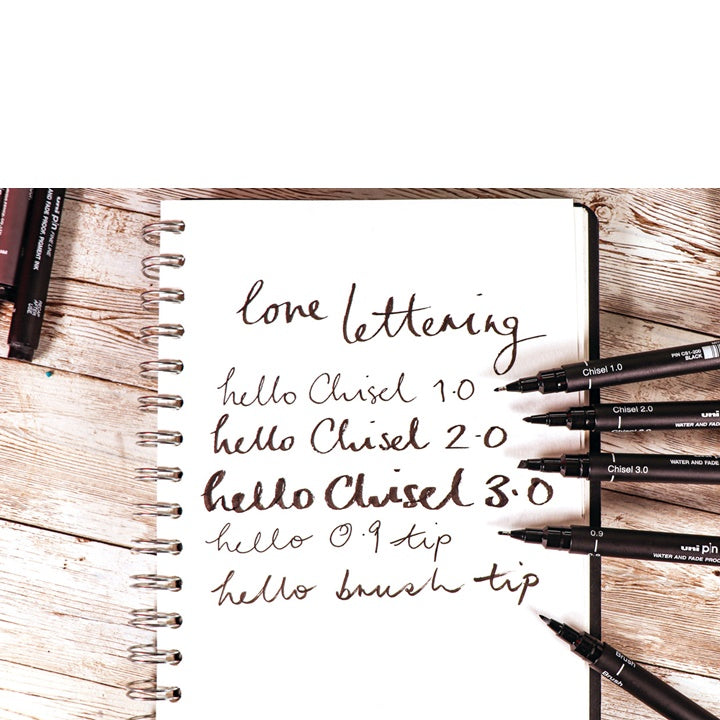 love lettering
hello Chisel 1.0
hello Chisel 2.0
hello Chisel 3.0
hello 0.9 tip
hello brush tip
PIN CS1-200
BLACK
Chisel 1.0
Chisel 2.0
uni
WATER AND FADE
WATER AND FADE
Chisel 3.0
0.9
uni pin
WATER AND FADE PROO
Brush
Brush
uni pin FINE LINE
AND FADE PROOF, PIGMENT INK